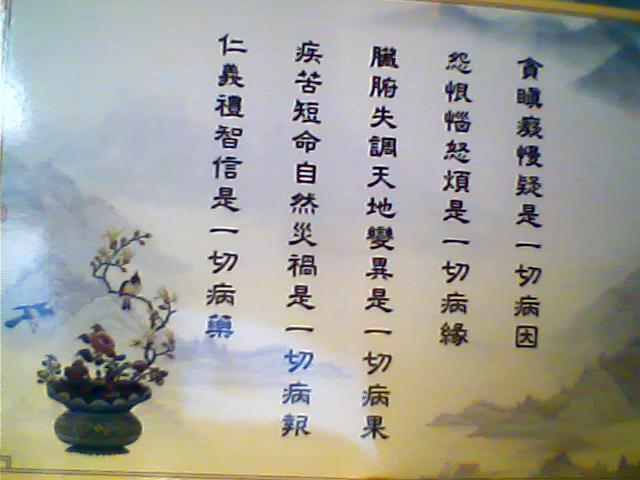 貪瞋癡慢疑是一切病因
怨恨惱怒煩是一切病緣
臟腑失調天地變異是一切病果
疾苦短命自然災禍是一切病報
仁義禮智信是一切病藥